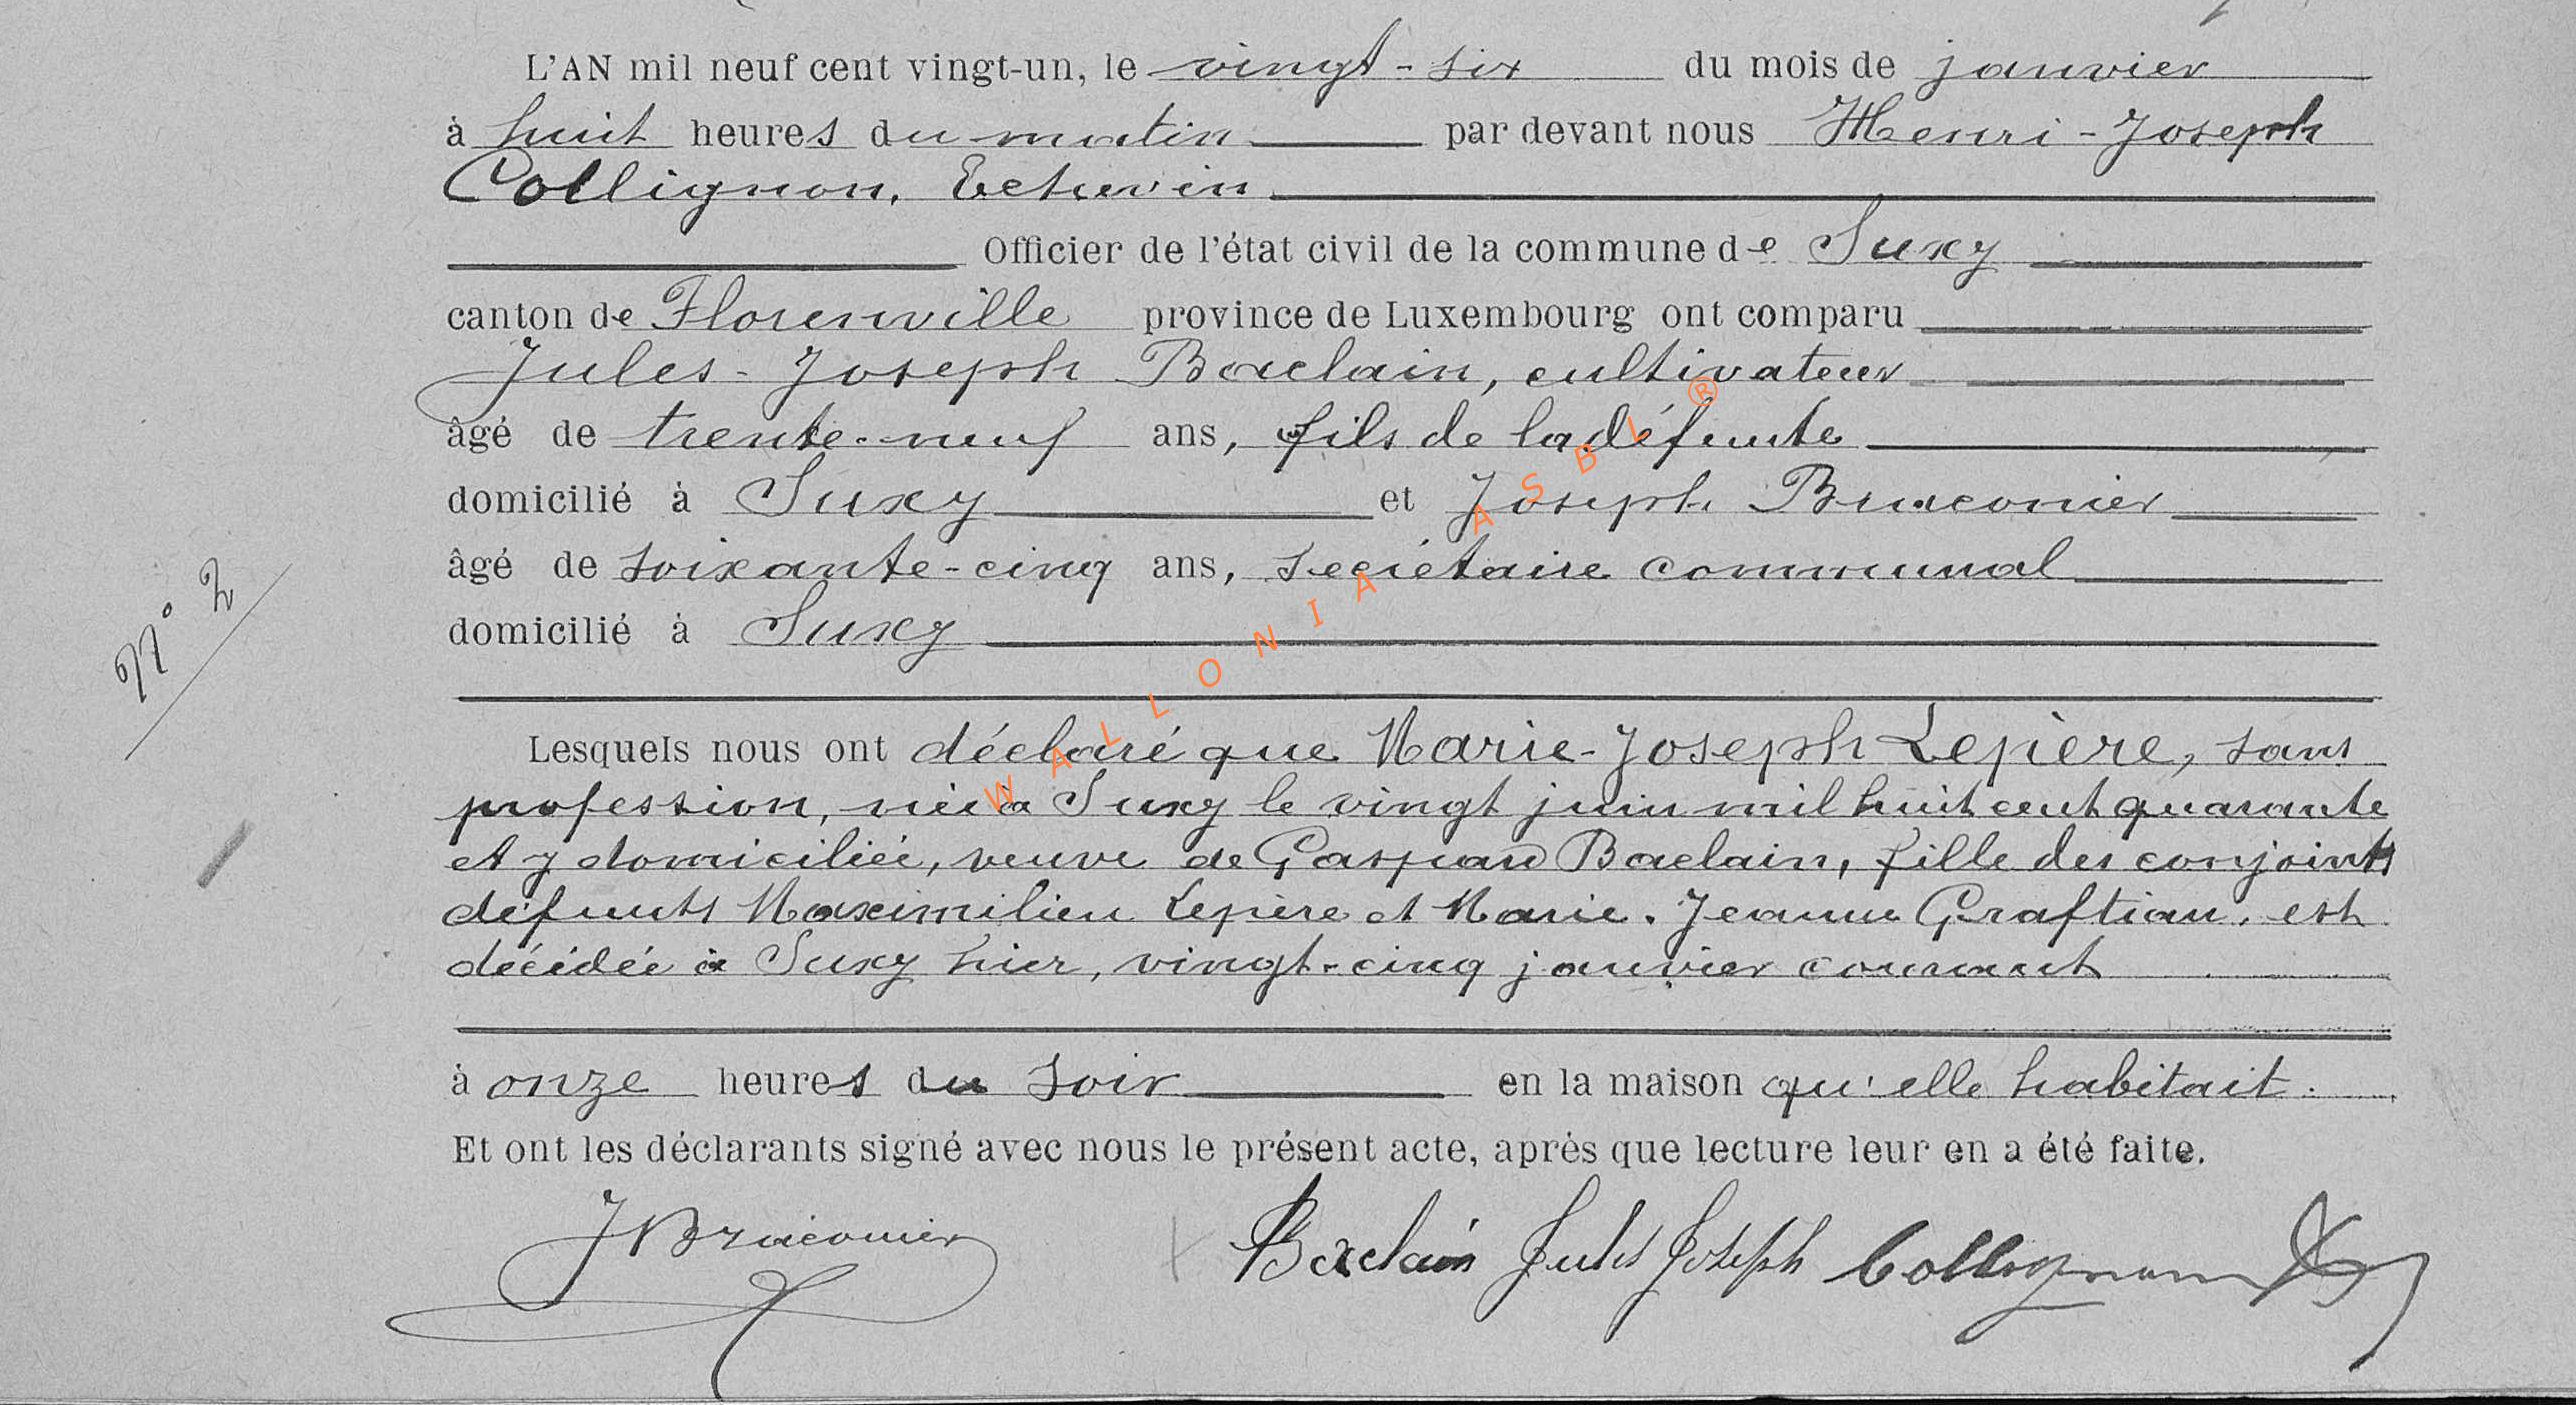 L'AN mil neuf cent vingt-un, le vingt-six du mois de janvier
à huit heures du matin par devant nous Henri-Joseph
Collignon, Echevin
Officier de l'état civil de la commune de Suxy
canton de Florenville province de Luxembourg ont comparu
Jules-Joseph Baclain, cultivateur
âgé de trente-neuf ans, fils de la défunte
domicilié à Suxy et Joseph Braconier
âgé de soixante-cinq ans, secrétaire communal
domicilié à Suxy
N° 2
Lesquels nous ont déclaré que Marie-Joseph Lepière, sans
profession, née à Suxy le vingt juin mil huit cent quarante
et y domiciliée, veuve de Gaspard Baclain, fille des conjoints
défunts Maximilien Lepière et Marie-Jeanne Graftiau, est
décédée à Suxy hier, vingt-cinq janvier courant
à onze heures du soir en la maison qu'elle habitait.
Et ont les déclarants signé avec nous le présent acte, après que lecture leur en a été faite.
J Braconier Baclain Jules Joseph Collignon
WALLONIA ASBL ®